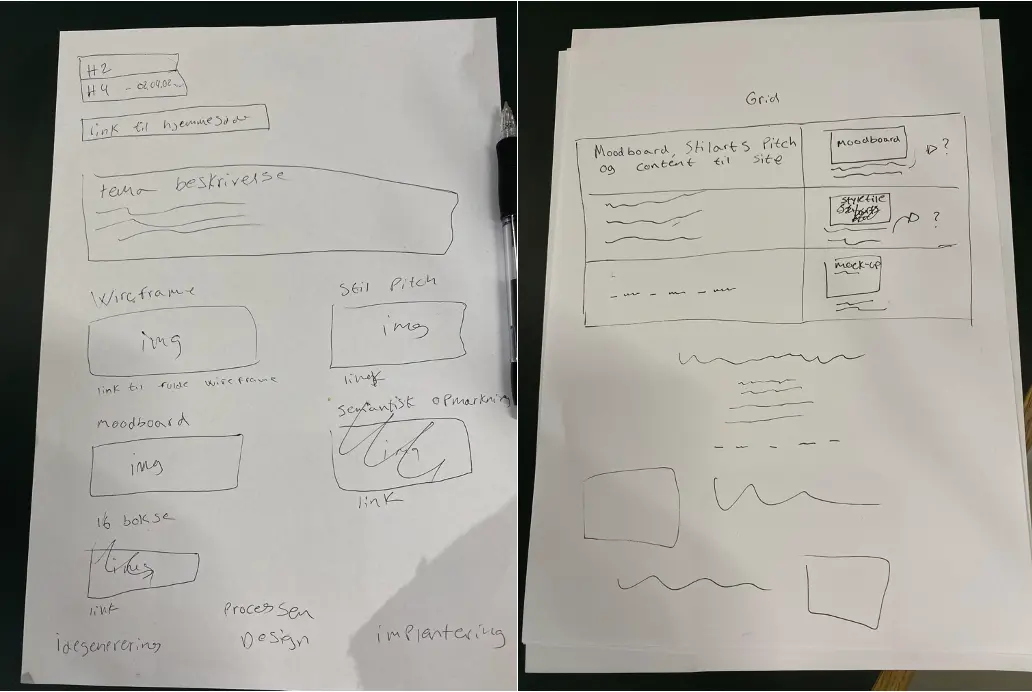 H2
H4 - 02.04.02
link til hjemmeside
tema beskrivelse
Wireframe
img
link til fulde wireframe
Stil Pitch
img
link
moodboard
img
semantisk opmarkning
img
link
16 bokse
link
Processen
idegenerering
Design
implantering
Grid
Moodboard, Stilarts Pitch
og content til site
Moodboard
?
Styletile
?
mock-up